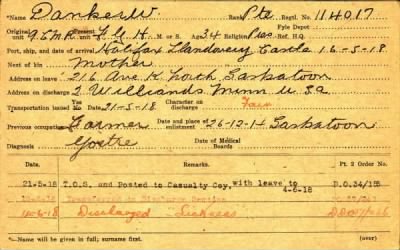 Name * Danker W. Rank Pte Regtl. No. 114017
Original unit 9. C.M.R. Present unit F.G.H. M. or S. Age 34 Religion Pres Fyle Depot Ref. H.Q.
Port, ship, and date of arrival Halifax Llandovery Castle 16-5-18
Next of kin Mother
Address on leave 216 Ave K South Saskatoon
Address on discharge 2 Minn U Sa
Transportation issued Yes No Date 21-5-18 Character on discharge Fair
Previous occupation Farmer Date and place of enlistment 26-12-14 Saskatoon
Diagnosis Goitre Date of Medical Boards
Date Remarks. Pt. 2 Order No.
21-5-18 T.O.S. and Posted to Casualty Coy. with leave to 4-6-18 D.O.34/155
14-6-18 Discharged Sickness
*—Name will be given in full; surname first.